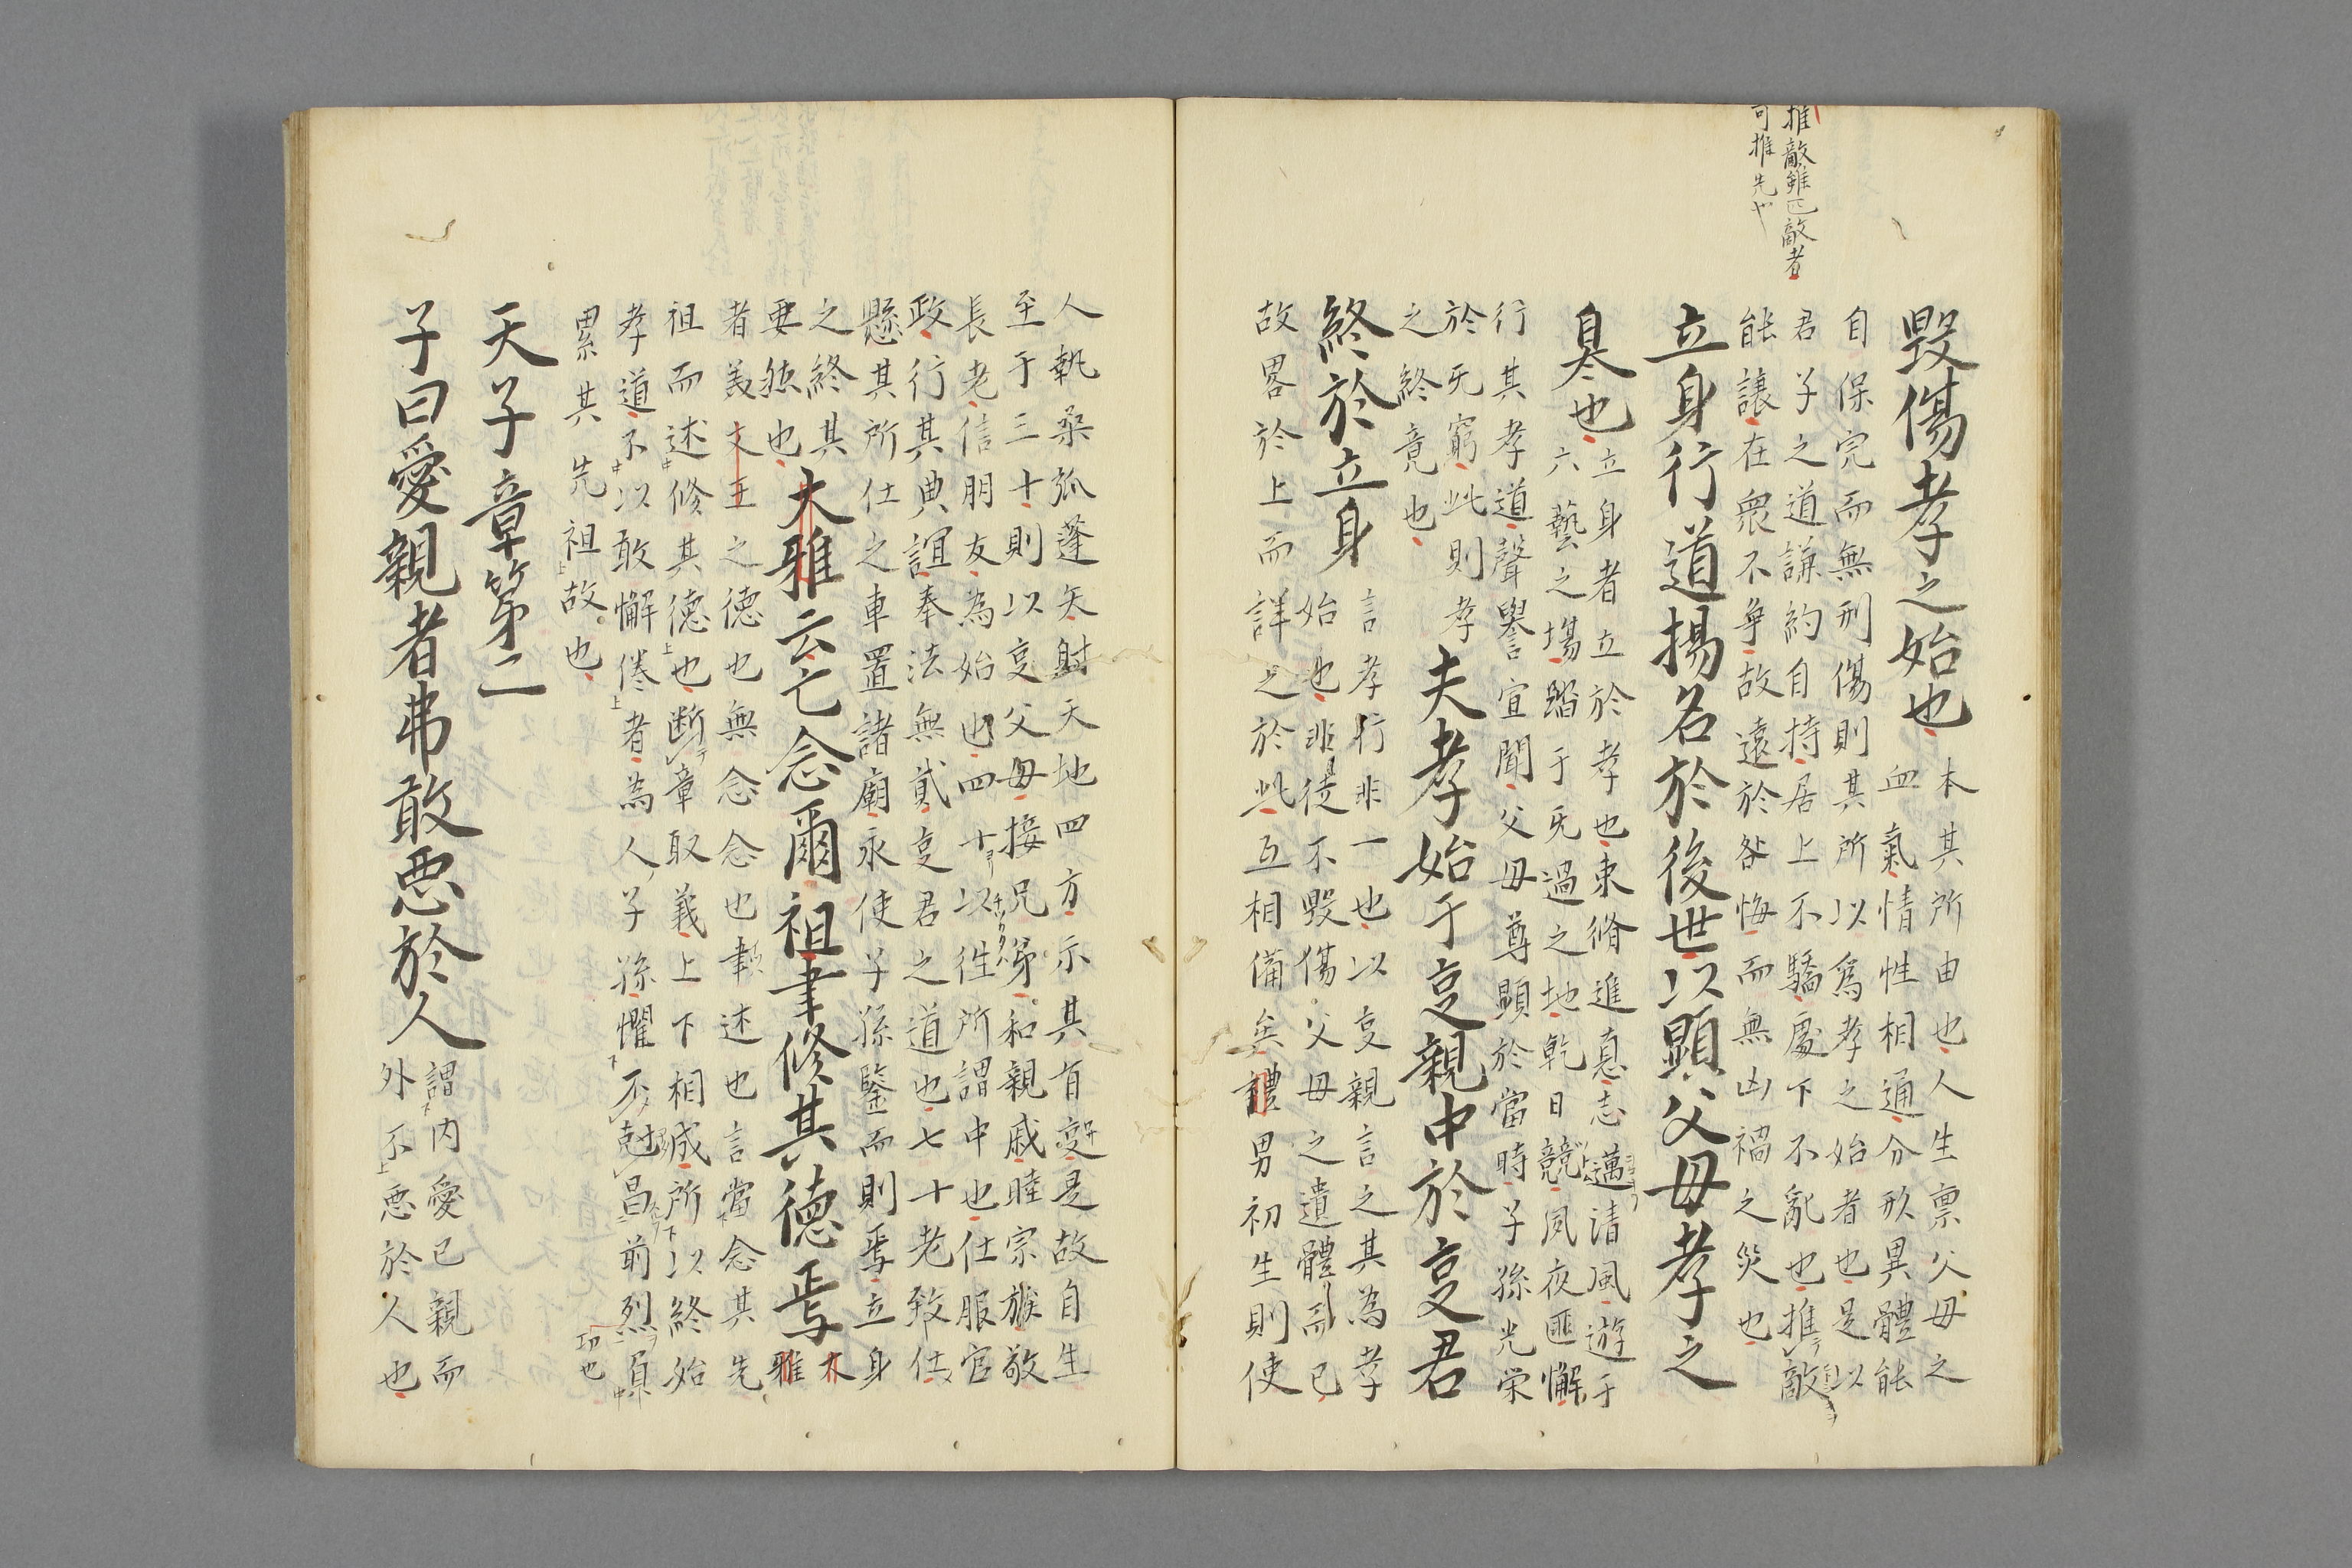 推敵雖匹敵者
可推先也
毀傷孝之始也
本其所由也人生禀父母之
血氣情性相通分形異體能
自保完而無刑傷則其所以為孝之始者也是以
君子之道謙約自持居上不驕處下不亂也推敵
能讓在衆不争故遠於咎悔而無凶禍之災也
立身行道揚名於後世以顕父母孝之
㝡也
立身者立於孝也束脩進惪志邁清風遊于
六藝之場蹈于旡過之地乾日競夙夜匪懈
行其孝道聲譽宣聞父母尊顕於當時子孫光栄
於旡窮此則孝
之終竟也
夫孝始于㕝親中於㕝君
終於立身
言孝行非一也以㕝親言之其為孝
始也非徒不毀傷父母之遺體而已
故畧於上而詳之於此互相備矣禮男初生則使
人執桑弧蓬矢射天地四方示其有㕝是故自生
至于三十則以㕝父母接兄弟和親戚睦宗族敬
長老信朋友為始也四十以徃所謂中也仕服官
政行其典誼奉法無貳㕝君之道也七十老致仕
懸其所仕之車置諸廟永使子孫鑒而則焉立身
之終其
要然也
大雅云亡念爾祖聿修其徳焉
大
雅
者美文王之徳也無念念也聿述也言當念其先
祖而述修其徳也断章取義上下相成所以終始
孝道不以敢懈倦者為人子孫懼不克昌前烈負
累其先祖故也
功也
天子章第二
子曰愛親者弗敢惡於人
謂内愛己親而
外不惡於人也